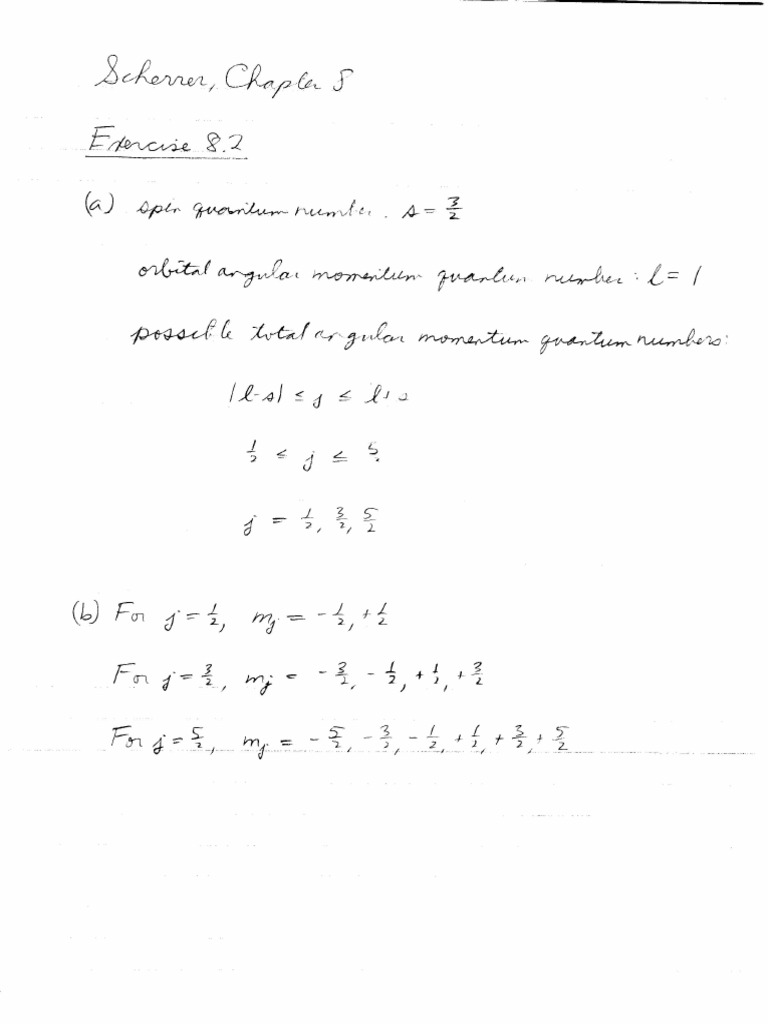 Scherrer, Chapter 8
Exercise 8.2
(a) spin quantum number. s = 3/2
orbital angular momentum quantum number: l = 1
possible total angular momentum quantum numbers:
|l-s| ≤ j ≤ l+s
1/2 ≤ j ≤ 5
j = 1/2, 3/2, 5/2
(b) For j = 1/2, mj = -1/2, +1/2
For j = 3/2, mj = -3/2, -1/2, +1/2, +3/2
For j = 5/2, mj = -5/2, -3/2, -1/2, +1/2, +3/2, +5/2